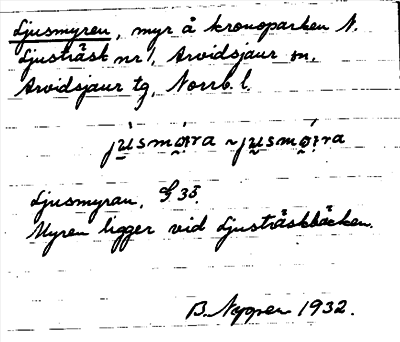 Ljusmyren, myr å kronoparken N.
Ljusträsk nr 1, Arvidsjaur sn,
Arvidsjaur tg, Norrb. l.
Ljusmyran, G 35.
Myren ligger vid Ljusträskbäcken.
B. Nyman 1932.